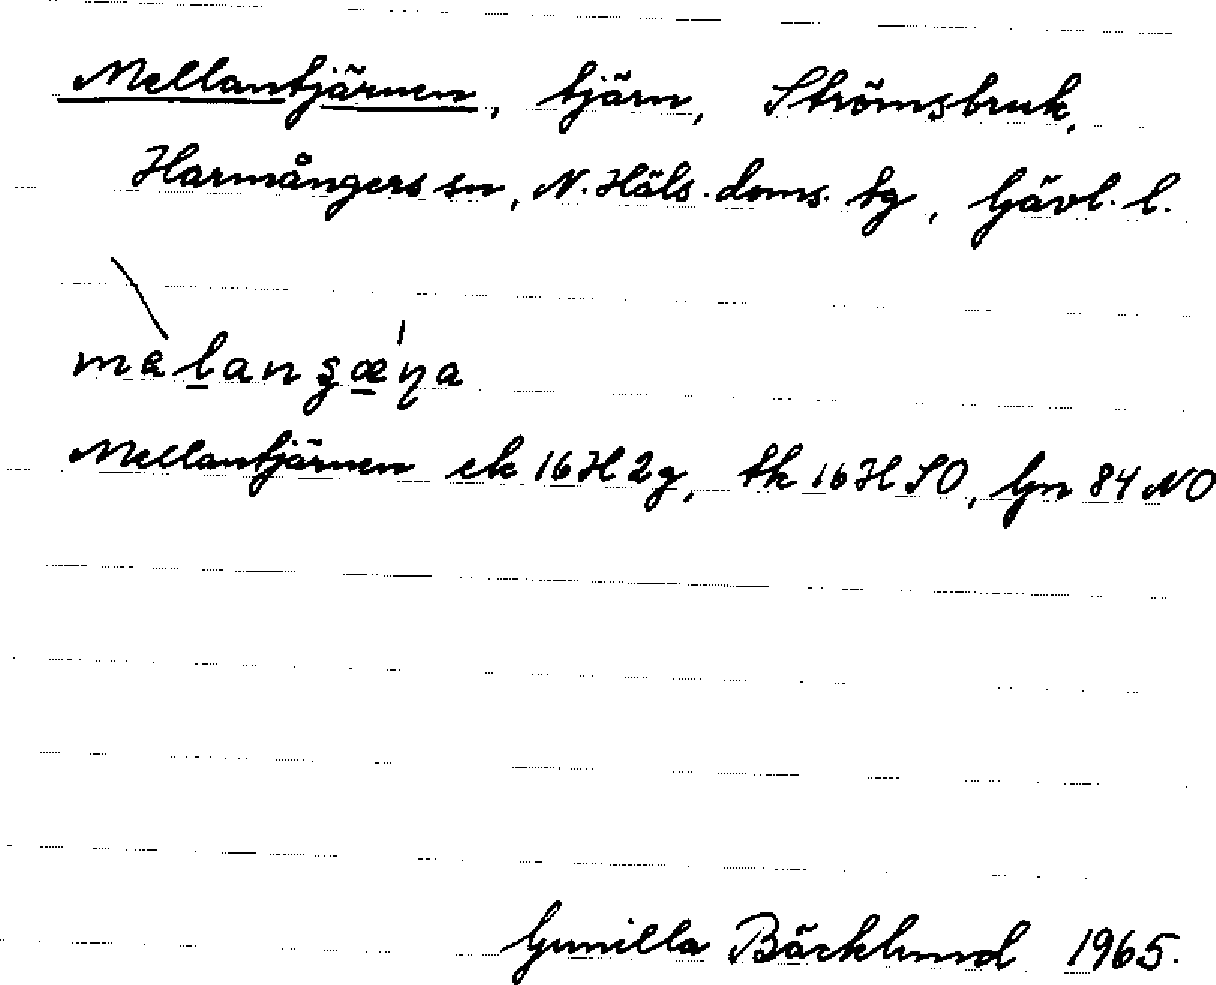 Mellantjärnen, tjärn, Strömsbruk,
Harmångers sn, N. Häls. doms. tg, Gävl. l.
Mellantjärnen ek 16H2g, tk 16H SO, Gn 84 NO
Gunilla Bäcklund 1965.